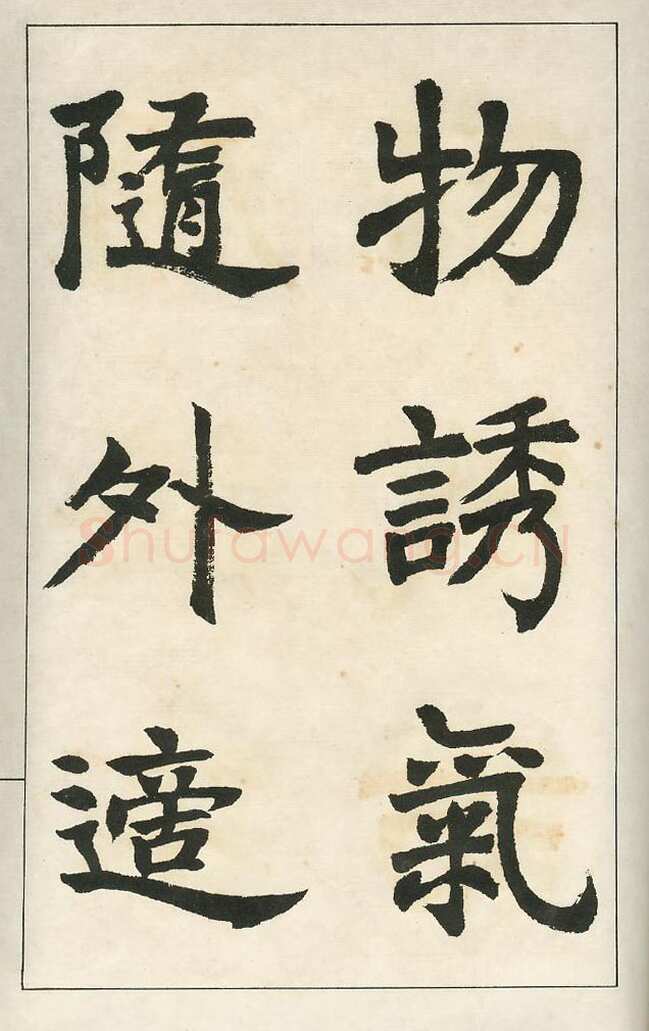 物誘氣
隨外適
Shufawang.CN